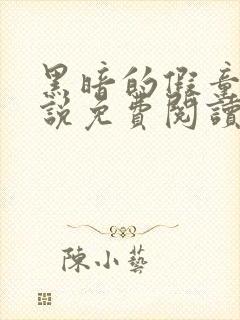 黑暗的假童
說免費閱讀
陳小藝